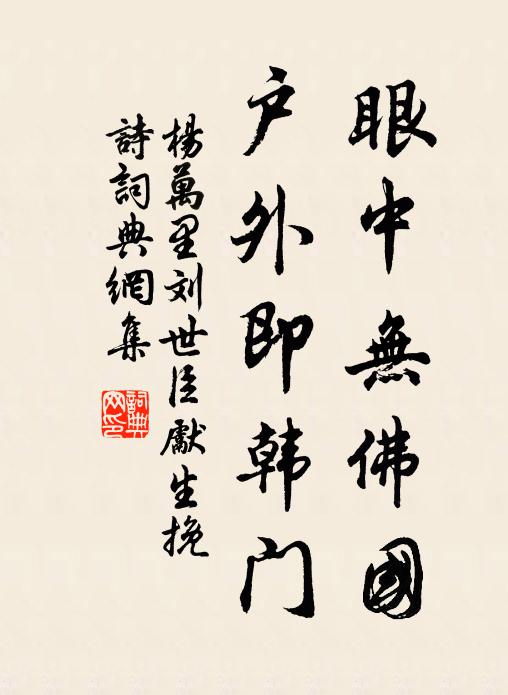 眼中無佛國
户外即韩门
楊萬里刘世臣獻生挽
詩詞典網集
詞典网印